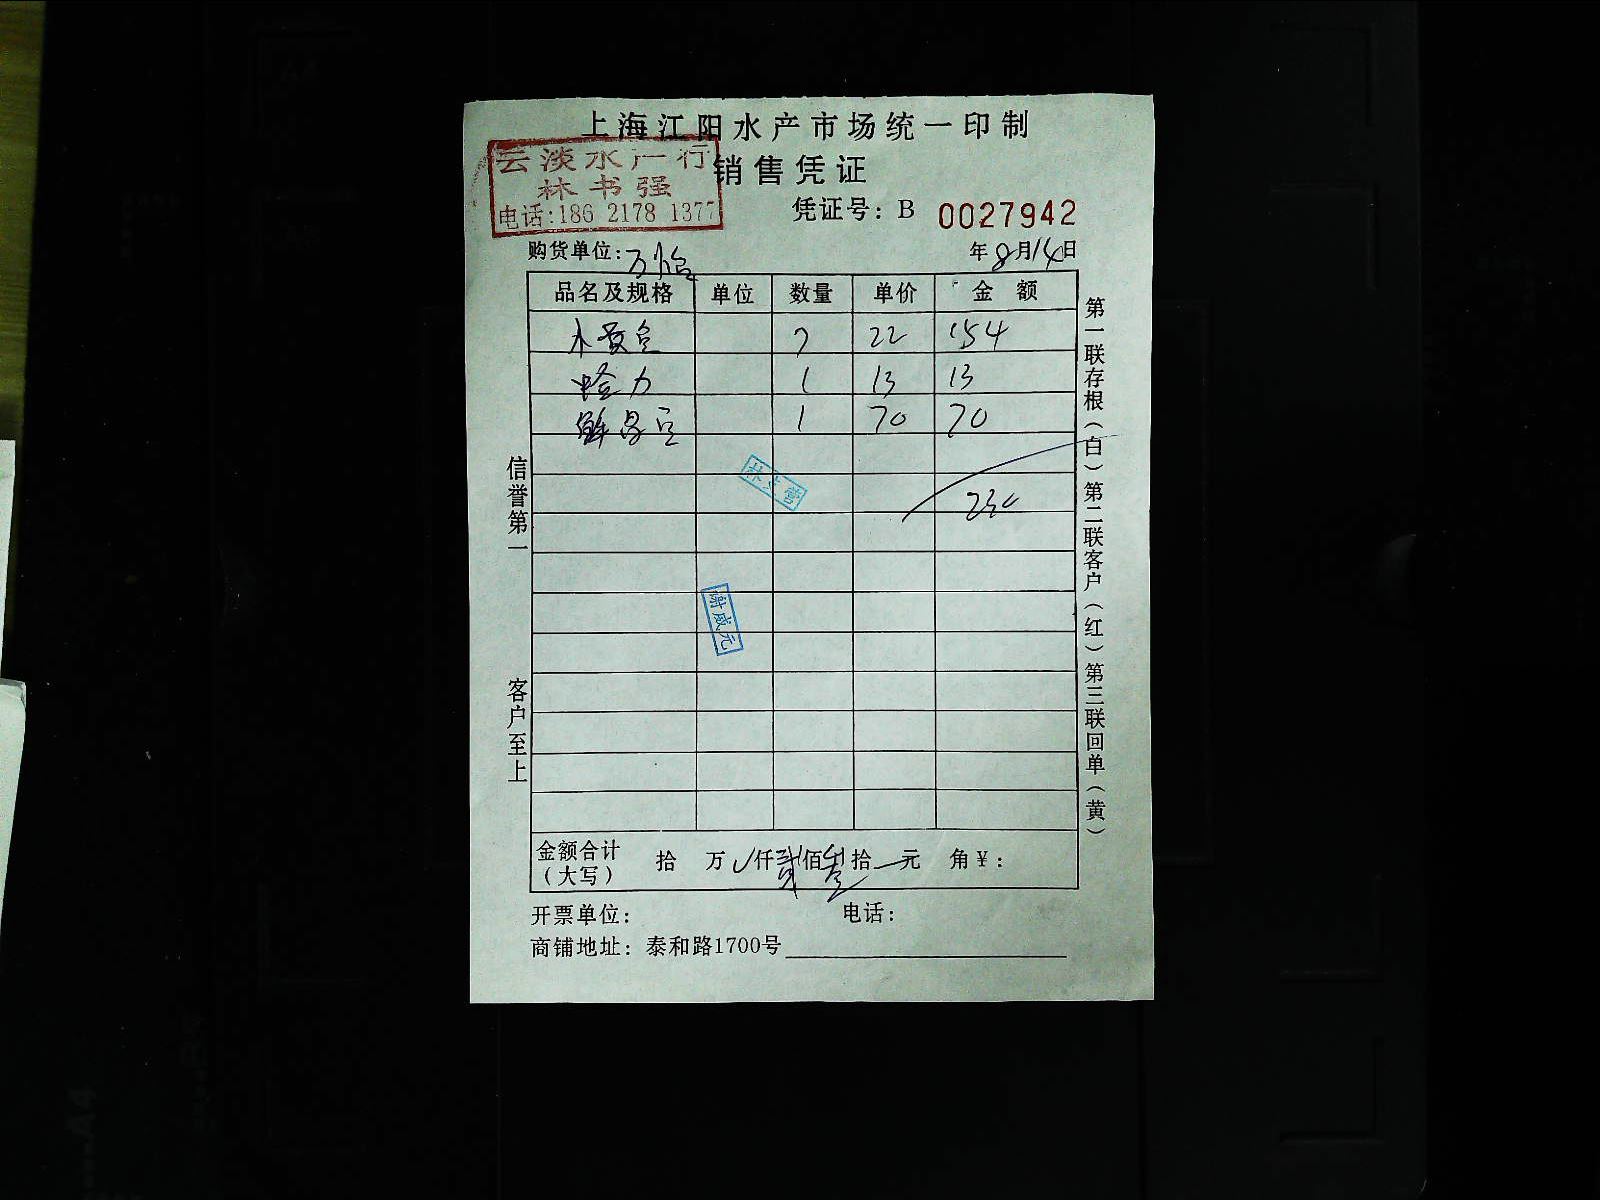 上海江阳水产市场统一印制
云淡水产行
林书强
电话:186 2178 1377
销售凭证
凭证号: B 0027942
购货单位:万怡
年8月14日
品名及规格 单位 数量 单价 金额
7 22 154
1 13 13
1 70 70
信誉第一
客户至上
谢威元
第一联存根(白)第二联客户(红)第三联回单(黄)
金额合计
(大写)
拾 万 仟贰佰叁拾 元 角¥:
开票单位:
电话:
商铺地址: 泰和路1700号